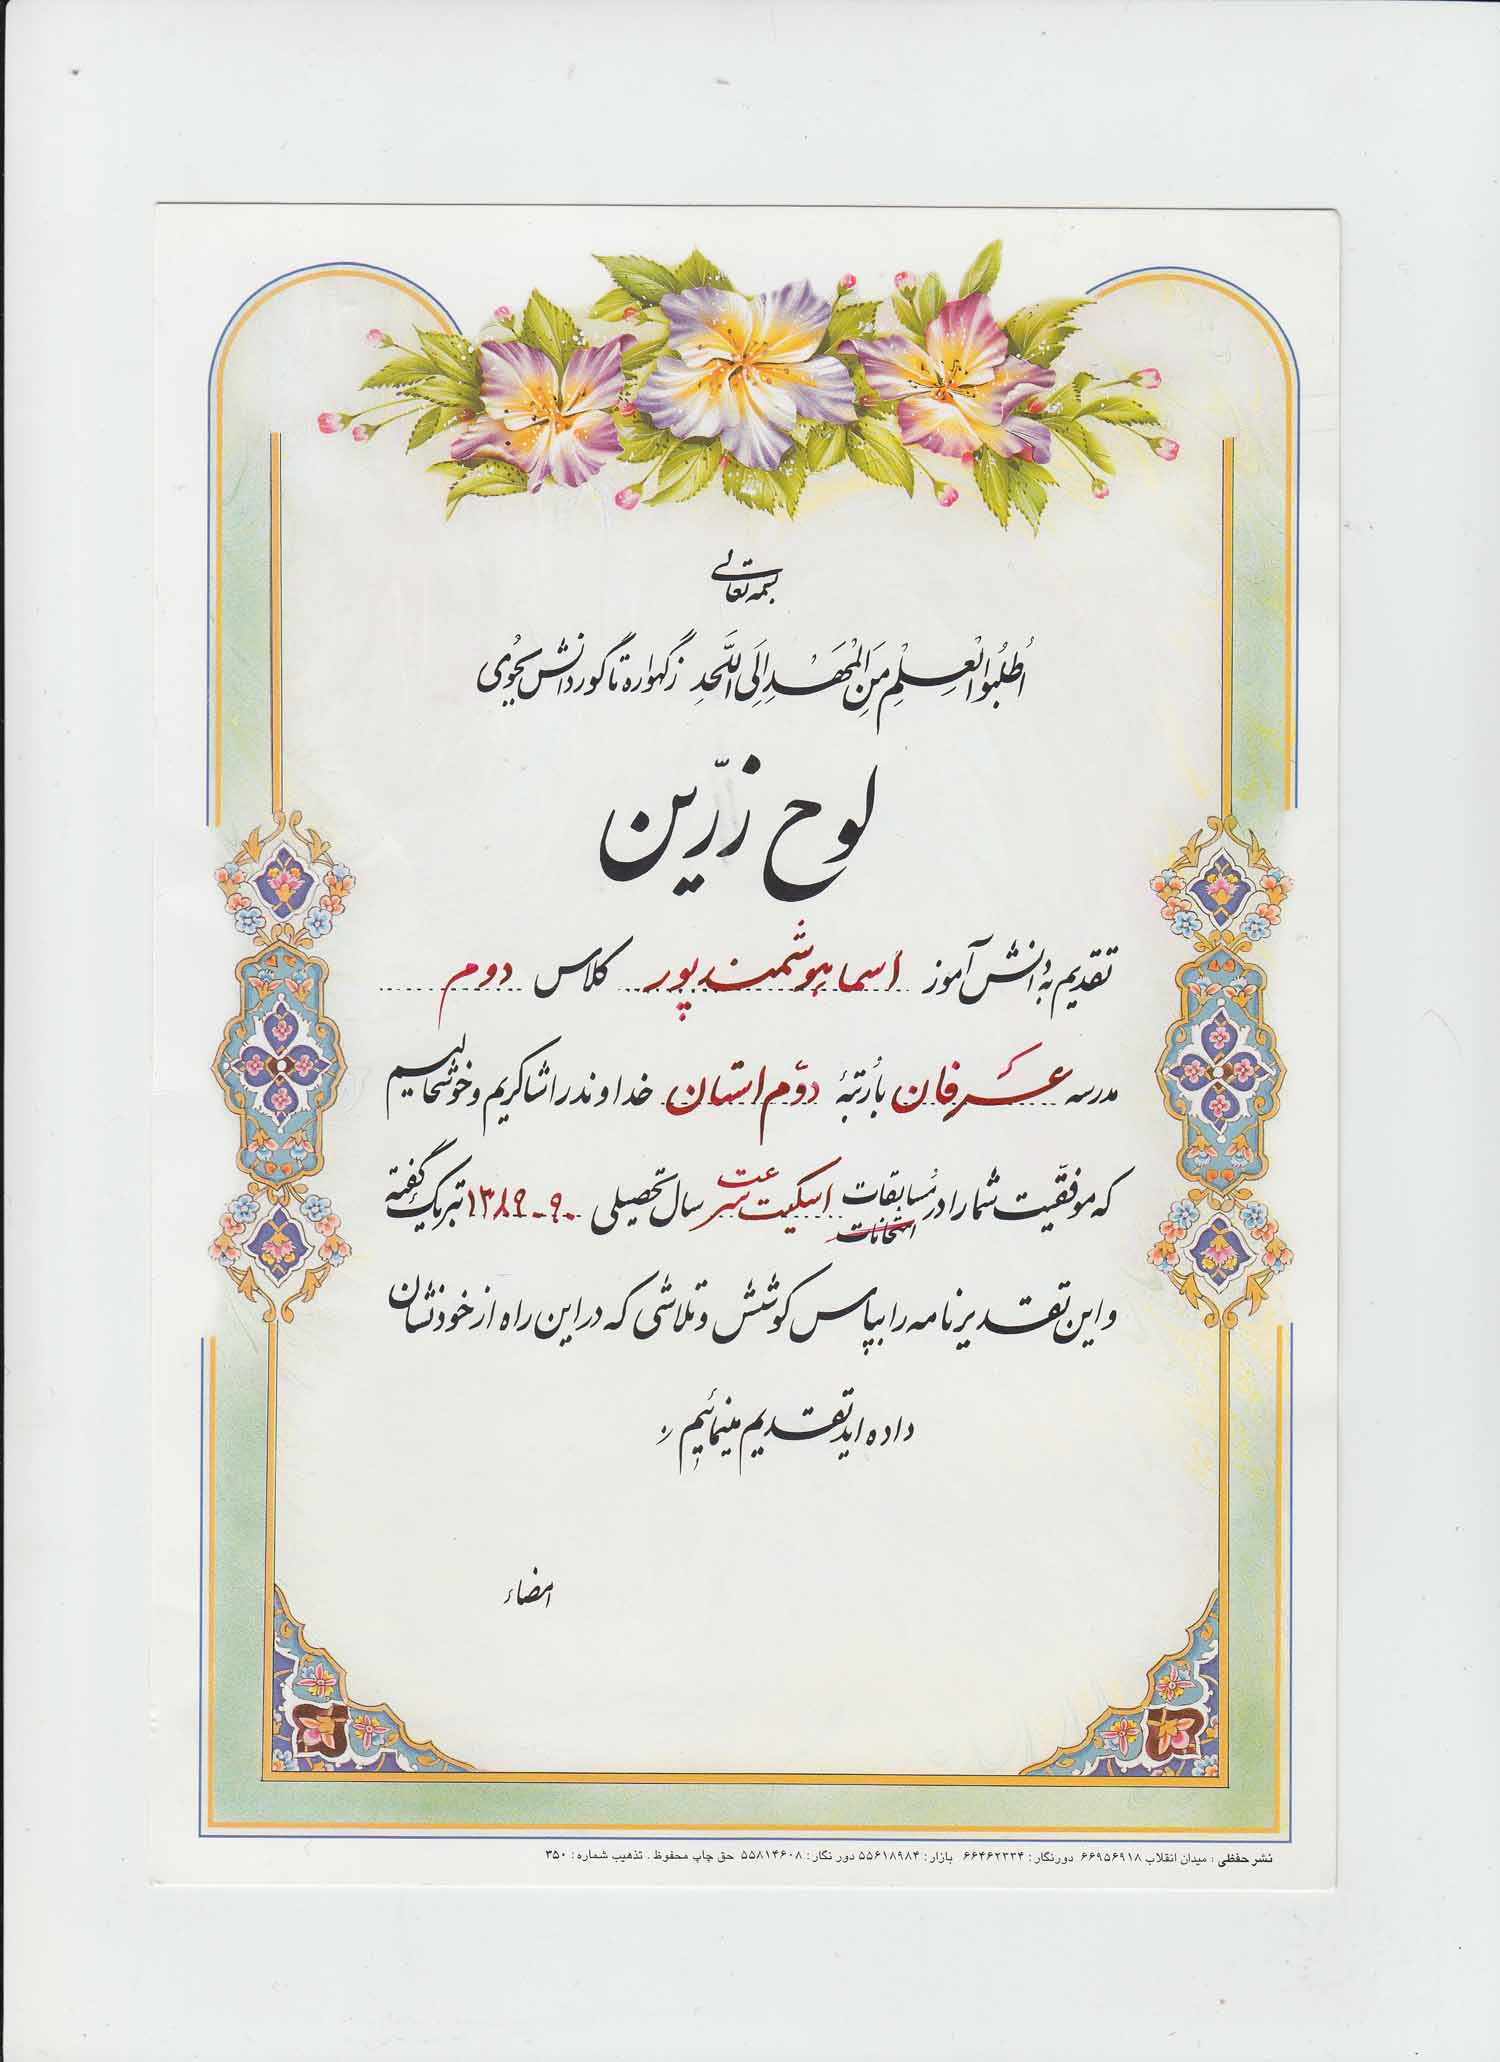 بسمه تعالی
اُطْلُبُوا الْعِلْمِ مِنَ الْمَهْدِ اِلَی اللَّحَدِ زگهواره تا گور دانش بجوی
لوح زرّین
تقدیم به دانش آموز اسما هوشمندپور کلاس دوم
مدرسه عرفان با رُتبهٔ دوّم استان خداوند را شاکریم و خوشحالیم
که موفقیت شما را در مسابقات امتحانات اسکیت سرعت سال تحصیلی ۱۳۸۹-۹۰ تبریک گفته
و این تقدیرنامه را بپاس کوشش و تلاشی که در این راه از خود نشان
داده اید تقدیم مینمائیم.
امضاء
نشر حفظی : میدان انقلاب ۶۶۹۵۶۹۱۸ دورنگار: ۶۶۴۶۲۳۳۴ بازار: ۵۵۶۱۸۹۸۴ دور نگار: ۵۵۸۱۴۶۰۸ حق چاپ محفوظ . تذهیب شماره: ۳۵۰